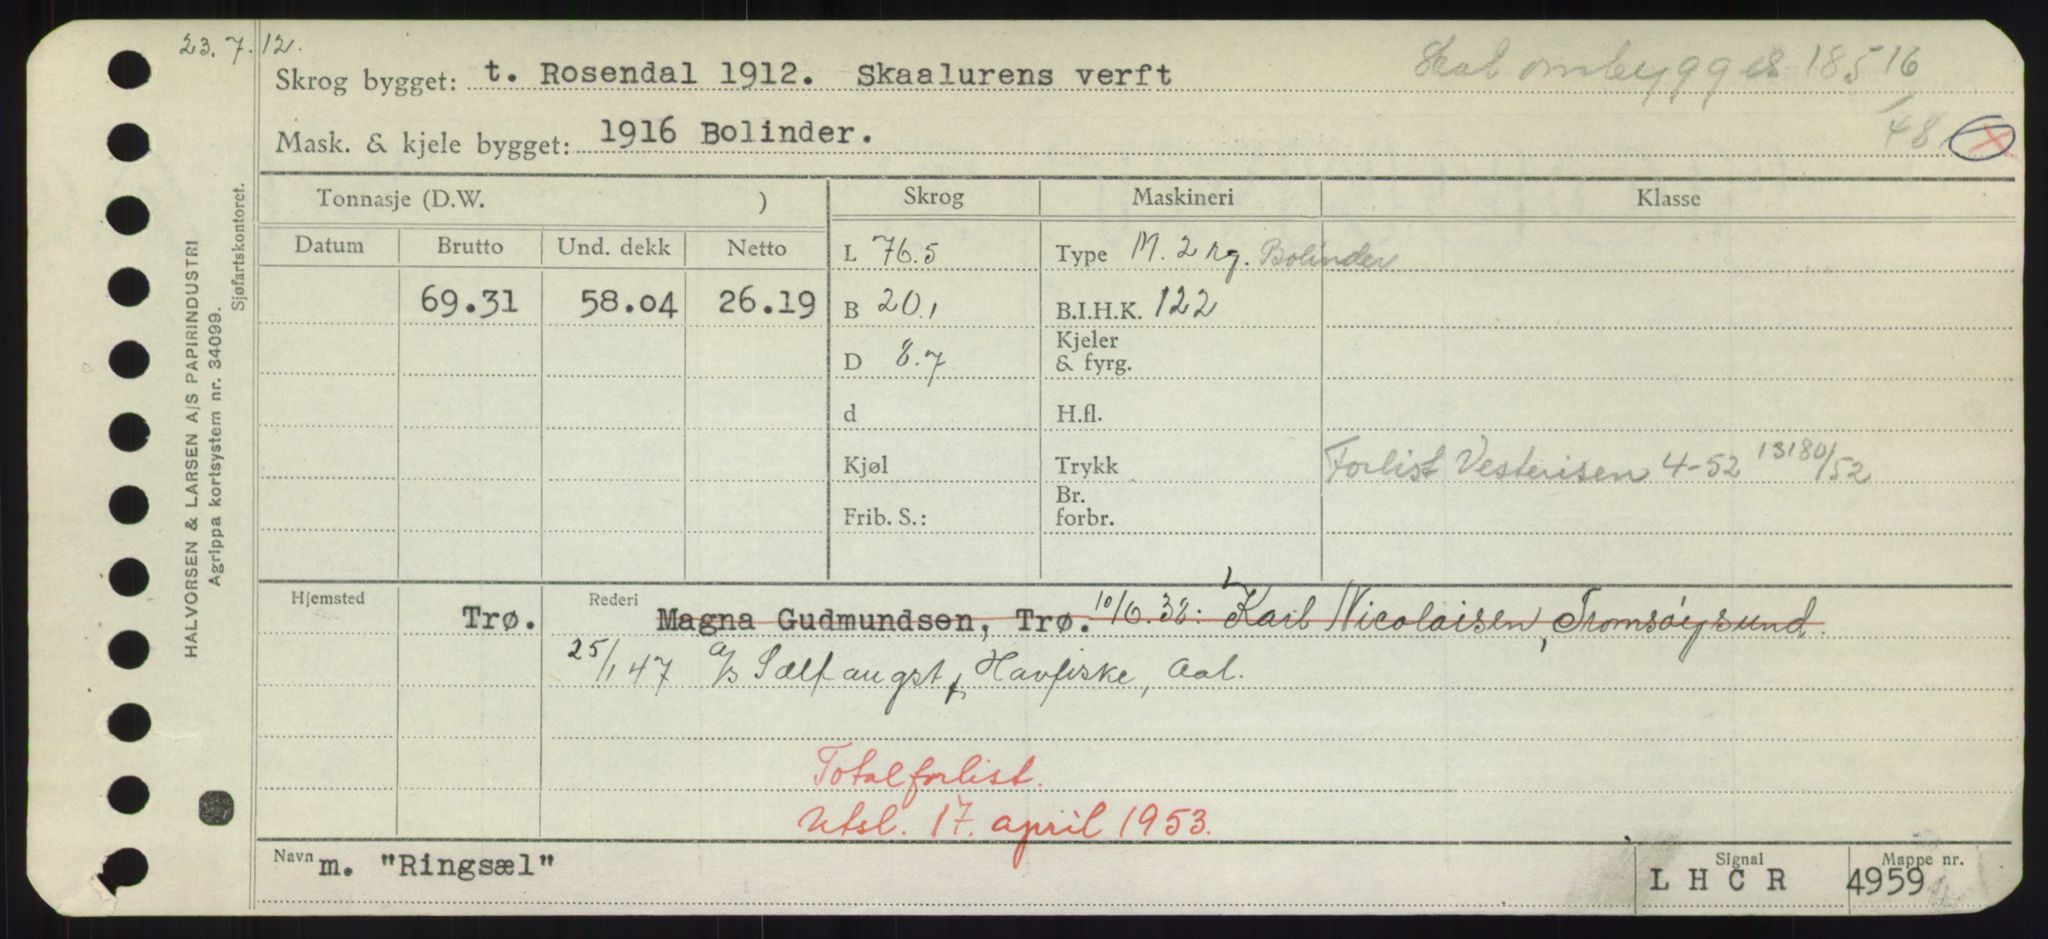 23.7.12.
Skrog bygget: t. Rosendal 1912. Skaalurens verft Skal ombygges 18516
/48
Mask. & kjele bygget: 1916 Bolinder.
Tonnasje (D.W. ) Skrog Maskineri Klasse
Datum Brutto Und. dekk Netto L 76.5 Type M. 2 sg. Bolinder
69.31 58.04 26.19 B 20,1 B.I.H.K. 122
D 8.7 Kjeler & fyrg.
d H.fl.
Kjøl Trykk Forlist Vesterisen 4-52 13180/52
Frib. S.: Br. forbr.
Hjemsted Trø. Rederi Magna Gudmundsen, Trø. 10/6.38: Karl Nicolaisen, Tromsøysund.
25/1 47 A/S Selfangst & Havfiske, Aal.
Totalforlist.
Utsl. 17. april 1953.
Navn m. "Ringsæl" Signal L H C R Mappe nr. 4959
HALVORSEN & LARSEN A/S PAPIRINDUSTRI
Agrippa kortsystem nr. 34099.
Sjøfartskontoret.